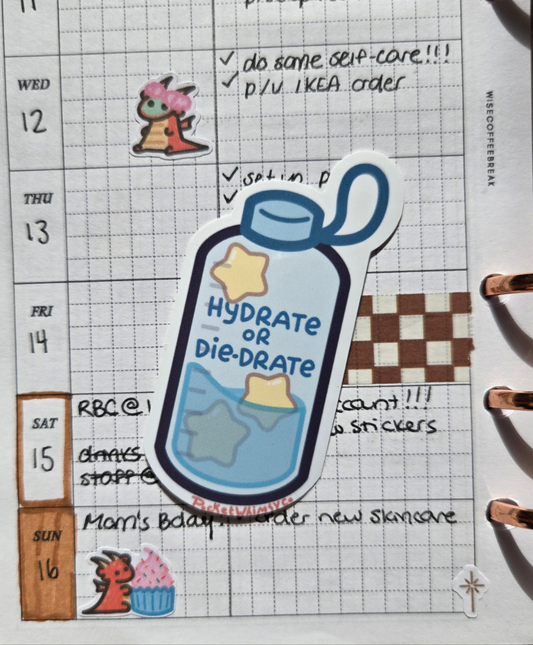 11
WED
12
✓ do some self-care!!!
✓ p/u IKEA order
THU
13
✓
✓
FRI
14
SAT
15
RBC @
!!!
stickers
drinks
staff @
SUN
16
Mom's Bday!
order new skincare
HYDRATE
OR
DIE-DRATE
PocketWhimsyCo
WISECOFFEEBREAK